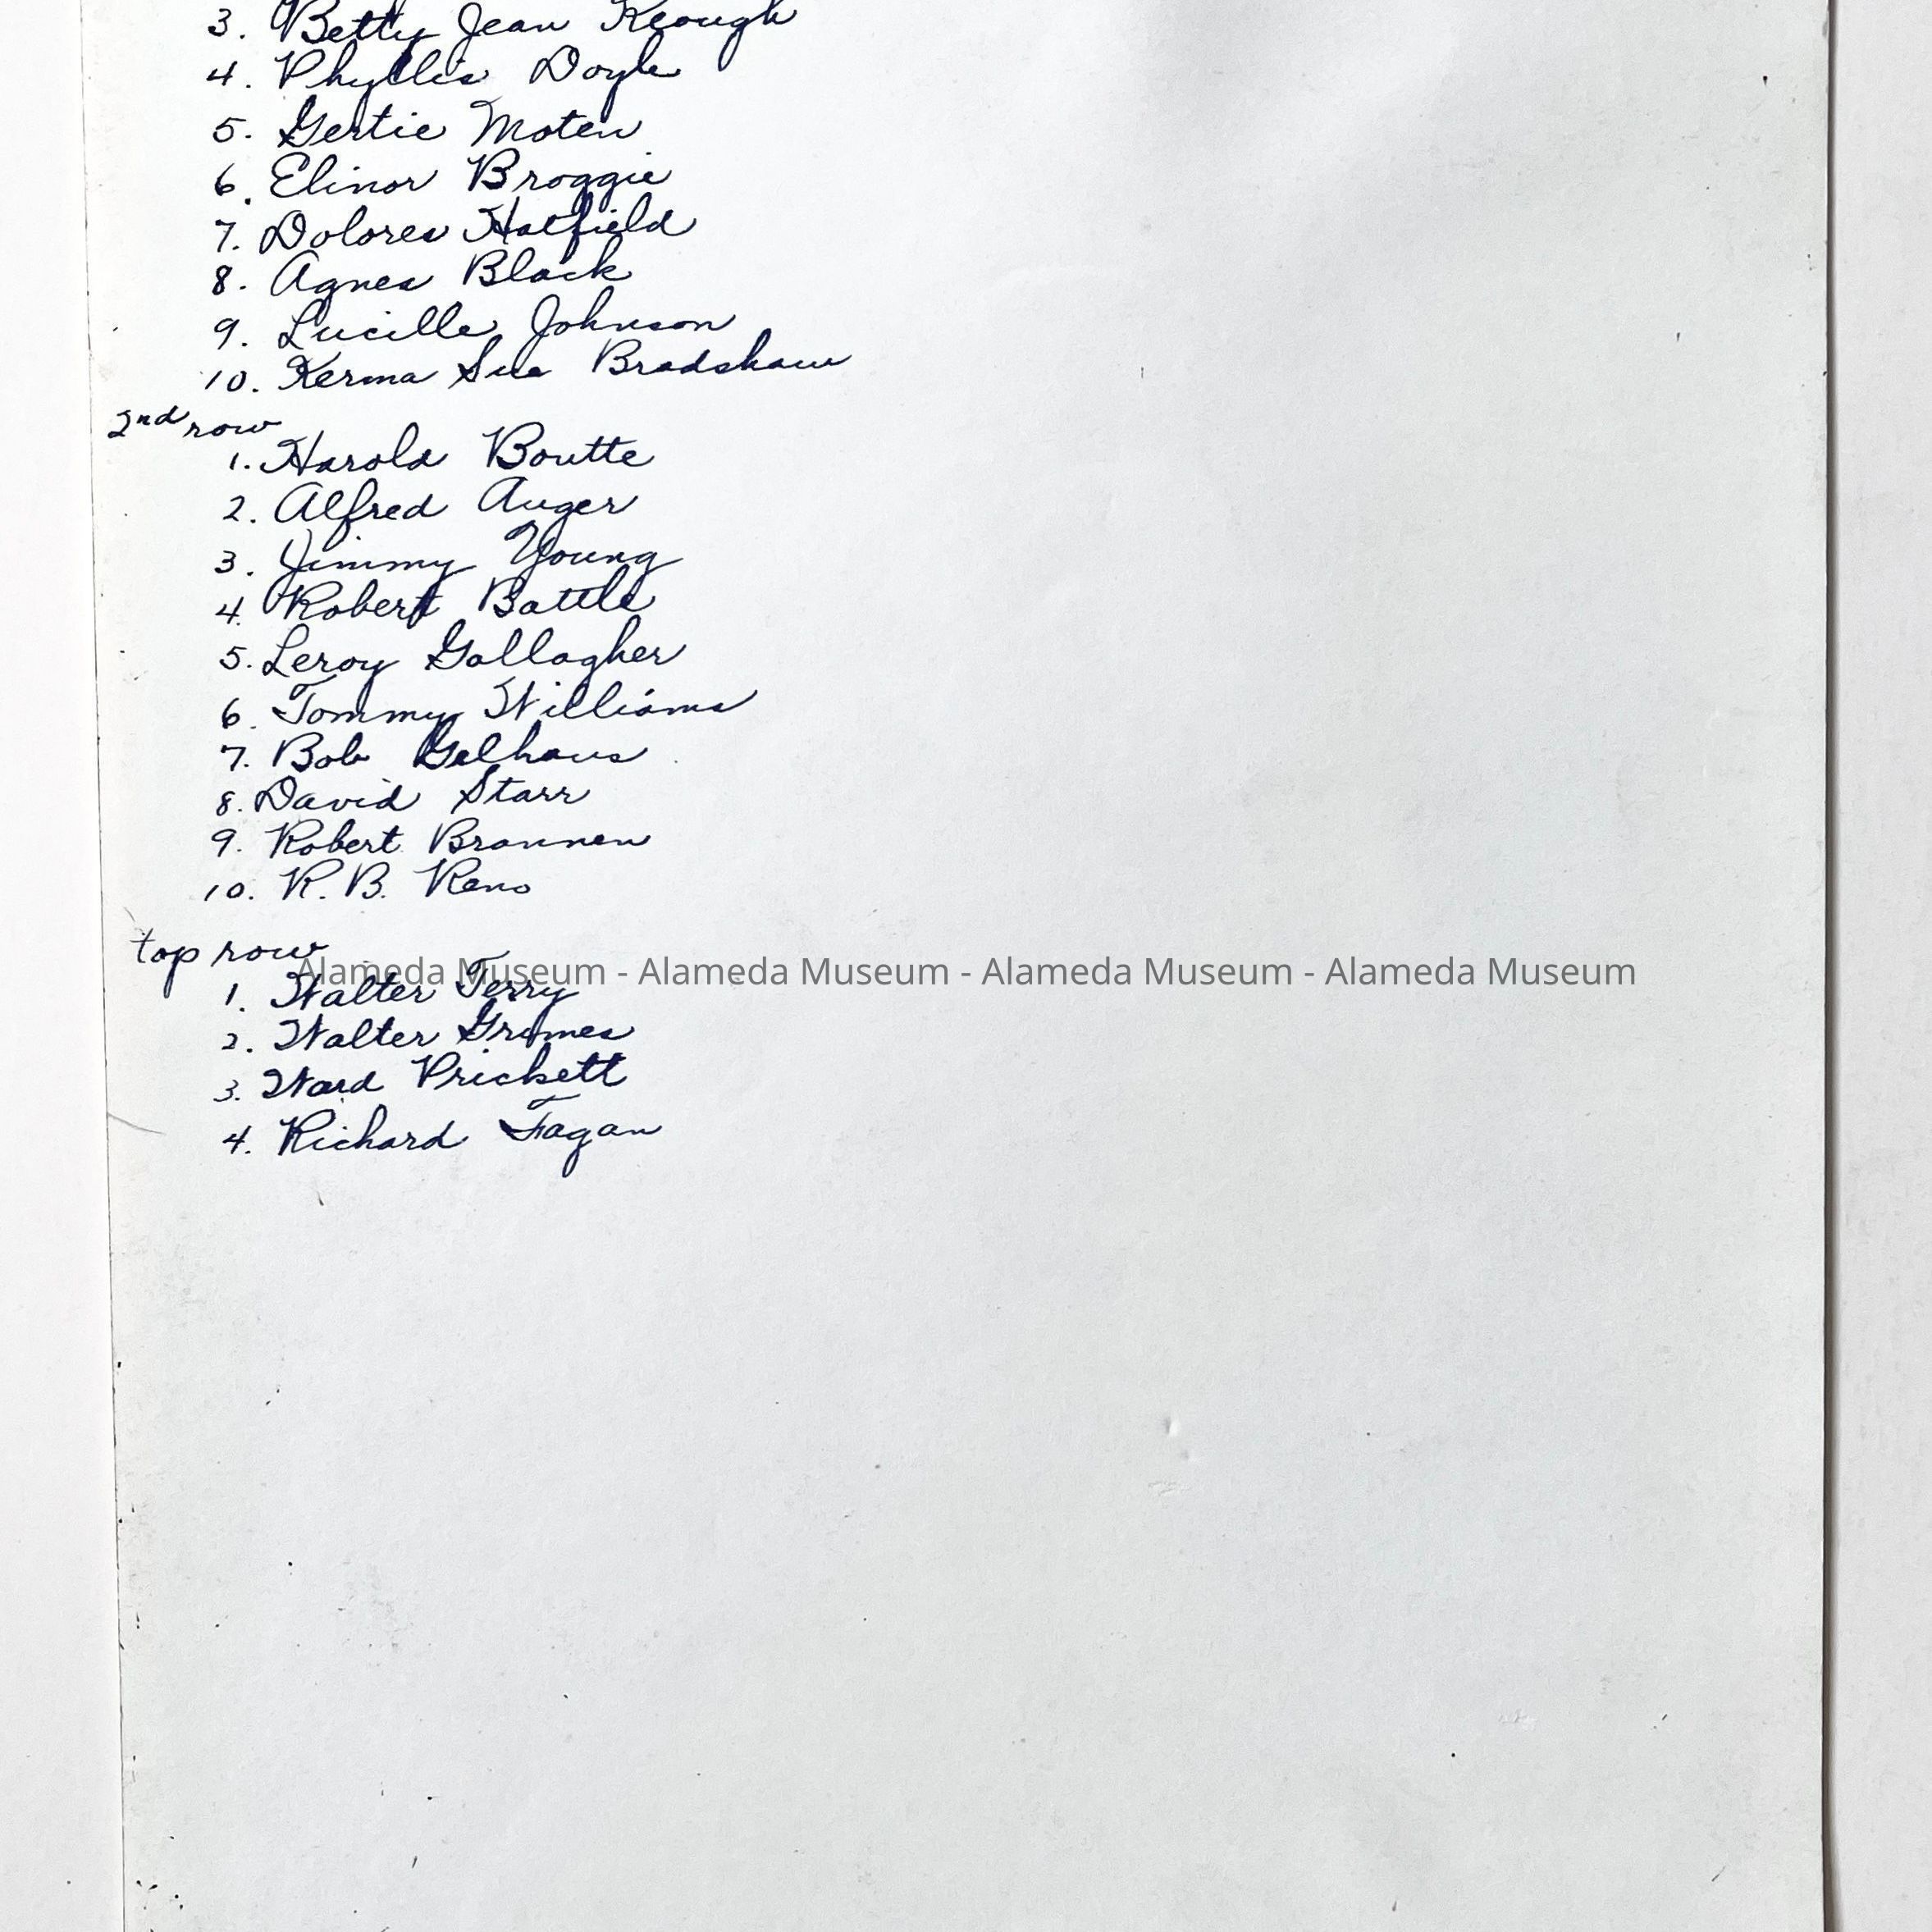 3. Betty Jean Keough
4. Phyllis Doyle
5. Gertie Moten
6. Elinor Broggie
7. Dolores Hatfield
8. Agnes Black
9. Lucille Johnson
10. Kerma Sue Bradshaw
2nd row
1. Harold Boutte
2. Alfred Auger
3. Jimmy Young
4. Robert Battle
5. Leroy Gallagher
6. Tommy Williams
7. Bob Gelhaus
8. David Starr
9. Robert Brannen
10. R. B. Reno
top row
Alameda Museum - Alameda Museum - Alameda Museum - Alameda Museum
1. Walter Terry
2. Walter Grimes
3. Ward Prickett
4. Richard Fagan